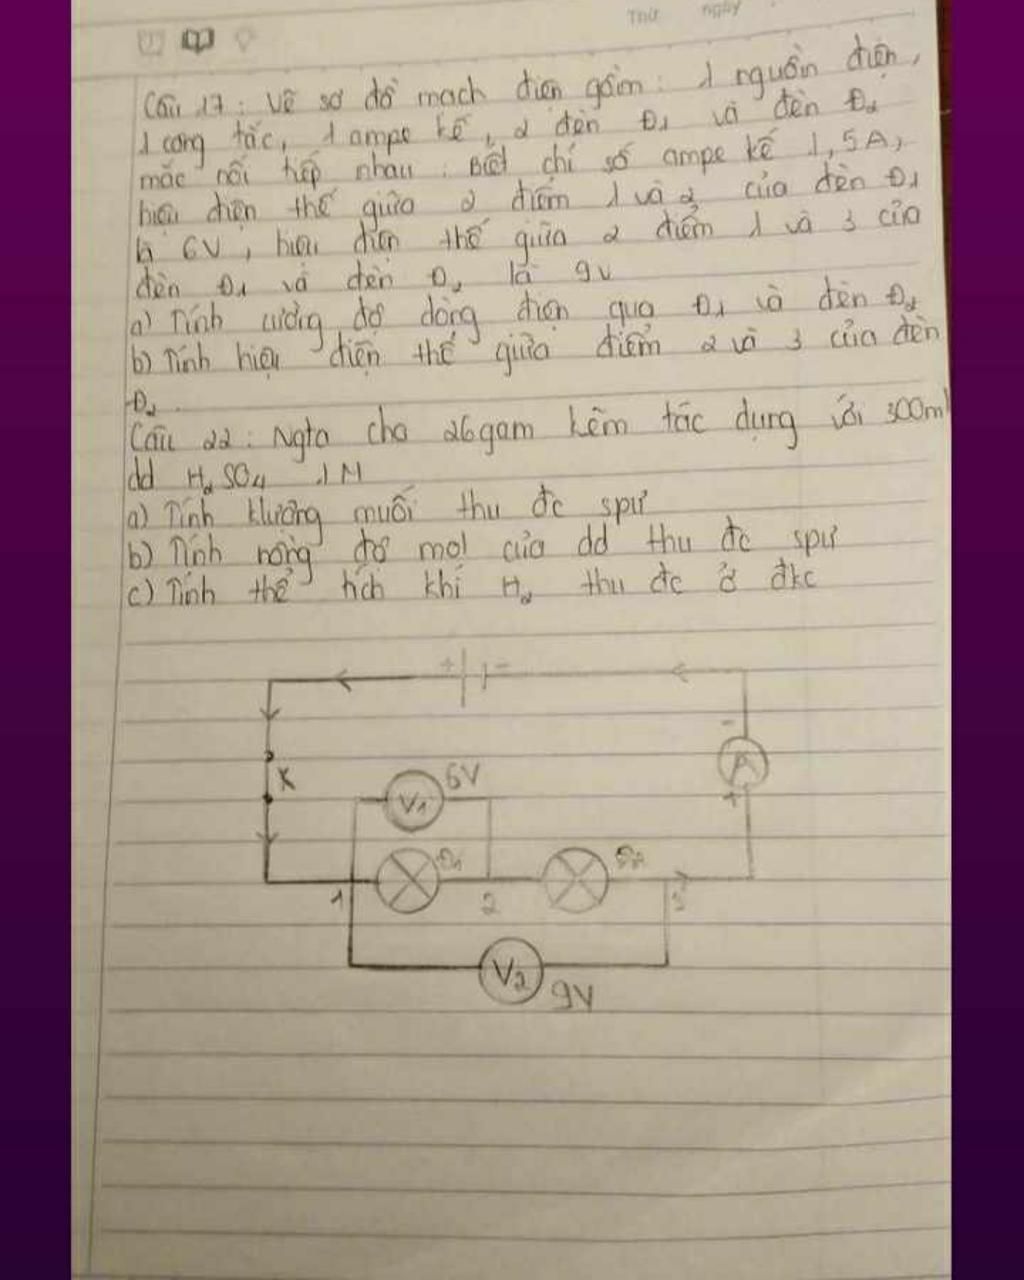 Thứ ngày
Câu 17: Vẽ sơ đồ mạch điện gồm: 1 nguồn điện,
1 công tắc, 1 ampe kế, 2 đèn Đ1 và đèn Đ2
mắc nối tiếp nhau. Biết chỉ số ampe kế 1,5A,
hiệu điện thế giữa 2 điểm 1 và 2 của đèn Đ1
là 6V, hiệu điện thế giữa 2 điểm 1 và 3 của
đèn Đ1 và đèn Đ2 là 9V
a) Tính cường độ dòng điện qua Đ1 và đèn Đ2
b) Tính hiệu điện thế giữa điểm 2 và 3 của đèn
Đ2.
Câu 22: Ngta cho 26gam kẽm tác dụng với 300ml
dd H2SO4 1M
a) Tính klượng muối thu đc spư
b) Tính nồng độ mol của dd thu đc spư
c) Tính thể tích khí H2 thu đc ở đkc
+ -
-
A
+
K
V1 6V
Đ1 Đ2
1 2 3
V2 9V